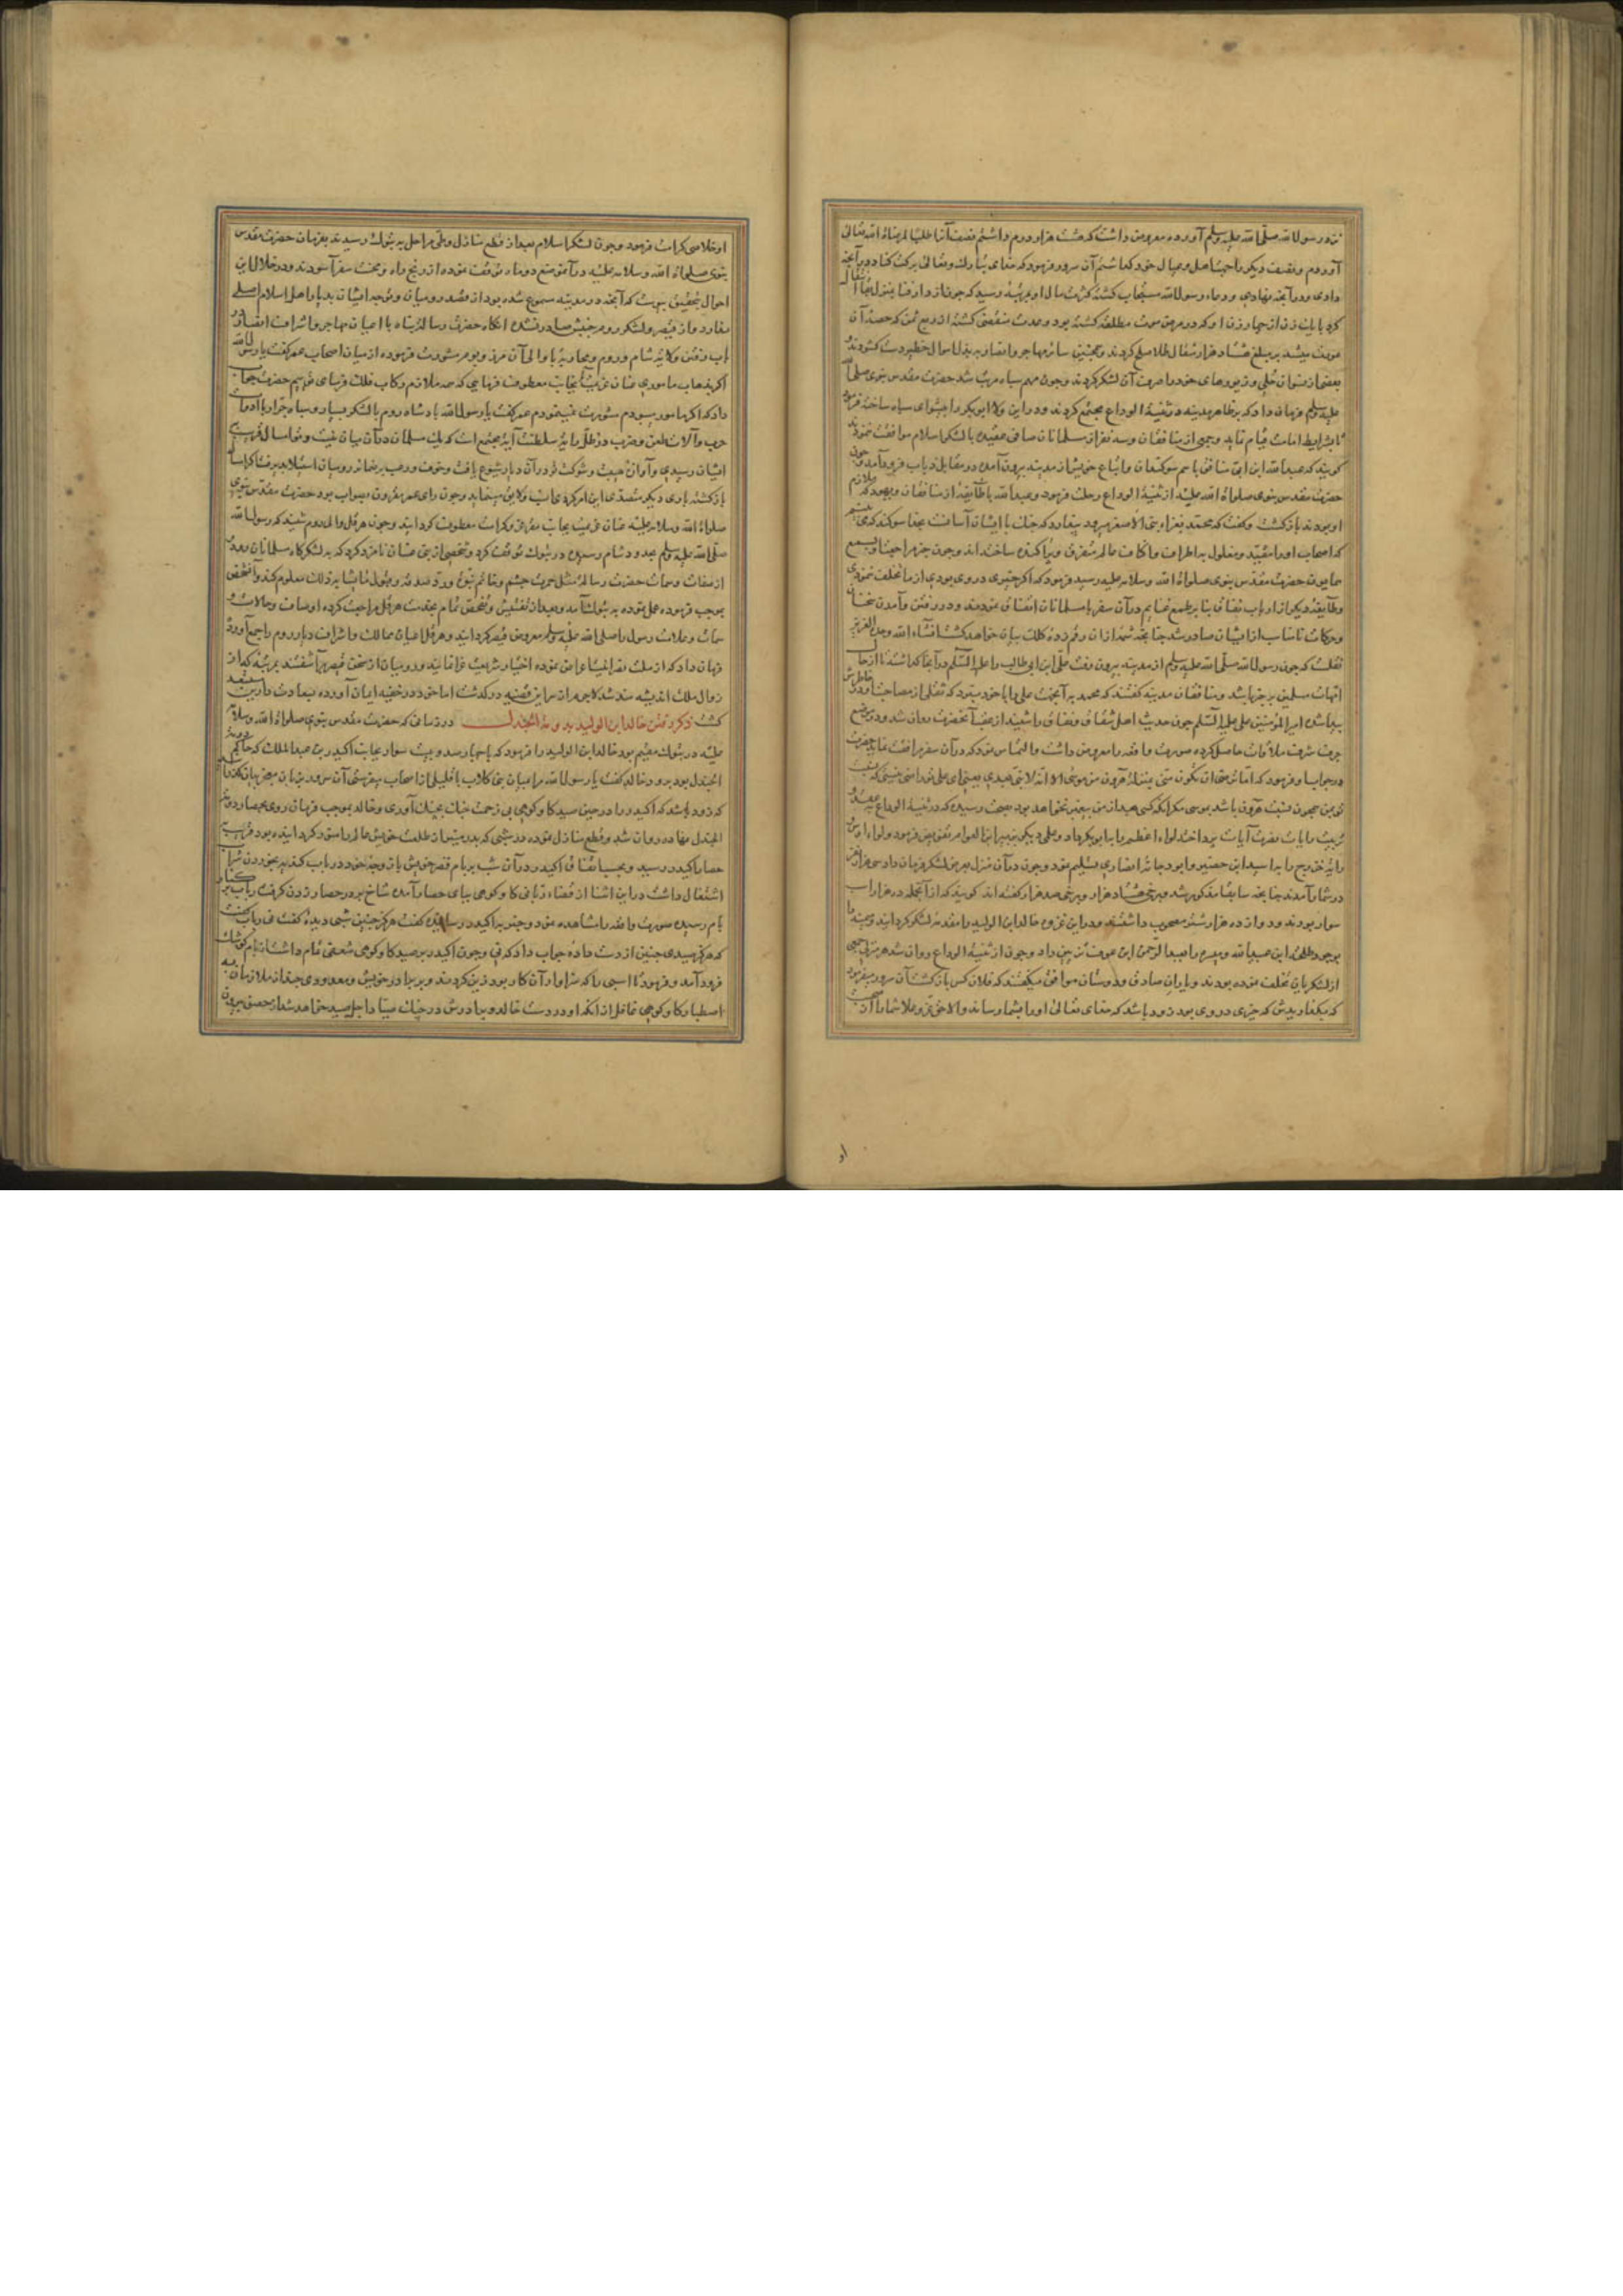 نزد رسول الله صلی الله علیه وسلم آورده معروض داشت که هشت هزار درم داشتم نصف آنرا طلبا لمرضاة الله تعالی
آوردم و نصف دیگر را جهت اهل و عیال خود گذاشتم آن سرور فرمود که خدای تبارک و تعالی برکت کناد در آنچه
دادی و در آنچه نهادی و دعاء رسول الله مستجاب گشته کثرت مال او بمرتبهٔ رسید که چون از دار فنا بمنزل بقا انتقال
کرد با یک زن از چهار زن او که در مرض موت مطلقه گشته بود و عدت منقضی گشته از ربع ثمن که حصهٔ آن
عورت میشد بر مبلغ هشتاد هزار مثقال طلا صلح کردند و همچنین سایر مهاجر و انصار ببذل اموال خطیر دست گشودند
بعضی از نسوان حلی و زیورهای خود را صرف آن لشکر کردند و چون مهم سپاه مرتب شد حضرت مقدس نبوی صلی الله
علیه وسلم فرمان داد که بر ظاهر مدینه در ثنیة الوداع مجتمع گردند و در این ولا ابوبکر را پیشوای سپاه ساخته فرمود
تا بشرایط امامت قیام نماید و جمعی از منافقان و سه نفر از مسلمانان صافی عقیده با لشکر اسلام موافقت ننمودند
گویند که عبدالله ابن ابی منافق با هم سوگندان و اتباع خویش از مدینه بیرون آمده در مقابل ذباب فرود آمد و چون
حضرت مقدس نبوی صلوات الله علیه از ثنیة الوداع رحلت فرمود و عبدالله با طایفهٔ از منافقان و یهود که ملازم
او بودند بازگشت و گفت که محمد بغزاء بنی الاصفر میرود پندارد که جنک با ایشان آسانست بخدا سوگند که می بینم
که اصحاب او را مقید و مغلول به اطراف و اکناف عالم متفرق و پراکنده ساخته اند و چون خبر مراجعت او بسمع
همایون حضرت مقدس نبوی صلوات الله وسلامه علیه رسید فرمود که اگر خیری در وی بودی از ما تخلف ننمودی
و طایفهٔ دیگر از ارباب نفاق بنا بر طمع غنایم در آن سفر با مسلمانان اتفاق نمودند و در رفتن و آمدن سخنان
و حرکات نامناسب از ایشان صادر شد چنانچه شمهٔ از ان رقم زدهٔ کلک بیان خواهد گشت انشاء الله وحده العزیز
نقلست که چون رسول الله صلی الله علیه وسلم از مدینه بیرون رفت علی ابن ابی طالب را علیه السلم در آنجا گذاشت تا از حال
امهات مسلمین پر خبر باشد و منافقان مدینه گفتند که محمد به آنجهت علی را با خود نبرد که ثقلی از مصاحبت او در خاطرش
پیدا شده امیرالمؤمنین علی علیه السلم چون حدیث اهل شقاق و نفاق را شنید از عقب آنحضرت روان شد و در موضع
جرف شرف ملاقات حاصل کرده صورت واقعه را معروض داشت و التماس نمود که در آن سفر مرافقت نماید حضرت
در جواب او فرمود که اما ترضی ان تکون منی بمنزلة هرون من موسی الا انه لا نبی بعدی یعنی ای علی تو راضی نیستی که نسبت
تو بمن همچون نسبت هرون باشد بموسی مگر آنکه کسی بعد از من پیغمبر نخواهد بود بصحت رسیده که در ثنیة الوداع بعقد و
ترتیب رایات نصرت آیات پرداخت لواء اعظم را بابوبکر داد و علمی دیگر بزبیر ابن العوام تفویض فرمود و لواء اوس
رایة خزرج را به اسید ابن حضیر و ابودجانه انصاری تسلیم نمود و چون در آن منزل بعرض لشکر فرمان داد سی هزار نفر
در شمار آمدند چنانچه سابقا مذکور شد و برخی هشتاد هزار و برخی صد هزار گفته اند گویند که از آنجمله ده هزار اسب
سوار بودند و دوازده هزار شتر مصحوب داشتند و در این غزوه خالد ابن الولید را مقدمه لشکر گردانید و میمنه را
بوجود طلحه ابن عبیدالله و میسره را بعبد الرحمن ابن عوف تزیین داد و چون از ثنیة الوداع روان شد هر منزلی جمعی
از لشکریان تخلف نموده بودند و یاران صادق و دوستان موافق میگفتند که فلان کس بازگشت آن سرور میفرمود
که بگذاریدش که خیری در وی بود زود باشد که خدای تعالی او را بشما رساند و الا حق عز و علا شما را از صحبت
او
او خلاصی کرامت فرمود و چون لشکر اسلام بعد از قطع منازل و طی مراحل به تبوک رسیدند بفرمان حضرت مقدس
نبوی صلوات الله وسلامه علیه در آن موضع دو ماه توقف نموده از رنج راه و محنت سفر آسودند و در خلال این
احوال بتحقیق پیوست که آنچه در مدینه مسموع شده بود از قصد رومیان و توجه ایشان بدیار اهل اسلام اصلی
ندارد و از قیصر و لشکر روم جنبش صادر نشده آنگاه حضرت رسالت پناه با اعیان مهاجر و اشراف انصار در
باب رفتن ولایت شام و روم و محاربه با والی آن مرز و بوم مشورت فرموده از میان اصحاب عمر گفت یا رسول الله
اگر بذهاب ماموری عنان عزیمت بآنجانب معطوف فرمایی که همه ملازم رکاب فلک فرسای خواهیم بود حضرت جواب
داد که اگر مامور میبودم مشورت نمینمودم عمر گفت یا رسول الله پادشاه روم با لشکر بسیار و سپاه جرار با ادوات
حرب و آلات طعن و ضرب در ظل رایت سلطنت آیة مجتمع است که یک مسلمان در آن میان نیست و تو امسال قریب
ایشان رسیدی و آوازهٔ هیبت و شوکت تو در آن دیار شیوع یافت و خوف و رعب بر ضمایر رومیان استیلا پذیرفت اگر امسال
بازگشته باری دیگر متصدی این امر گردی انسب و لایق مینماید و چون رای عمر مقرون بصواب بود حضرت مقدس نبوی
صلوات الله وسلامه علیه عنان عزیمت بجانب مقر عز و کرامت معطوف گردانید و چون هرقل والی روم شنید که رسول الله
صلی الله علیه وسلم بحدود شام رسیده در تبوک توقف کرد و شخصی از بنی غسان نامزد کرد که به لشکرگاه مسلمانان رود
از صفات و سمات حضرت رسالت مثل حمرت چشم و خاتم نبوت و رد صدقه و قبول هدایا و غیر ذلک معلوم کند و آن شخص
بموجب فرموده عمل نموده به تبوک آمد و بعد از تفتیش و تفحص تمام بخدمت هرقل مراجعت کرده اوصاف و حالات و
سمات و علامات رسول را صلی الله علیه وسلم معروض قیصر گردانید و هرقل اعیان ممالک و اشراف دیار روم را جمع آورده
فرمان داد که از ملت نصرانیت اعراض نموده اختیار شریعت غرا نمایند و رومیان از سخن قیصر برآشفتند بمرتبهٔ که از
زوال ملک اندیشه مند شد لاجرم از سر این قضیه درگذشت اما خود در خفیه ایمان آورده بسعادت دارین مستعد
گشت ذکر رفتن خالد ابن الولید بدومة الجندل در زمانی که حضرت مقدس نبوی صلوات الله وسلامه
علیه در تبوک مقیم بود خالد ابن الولید را فرمود که با چهارصد و بیست سوار بجانب اکیدر بن عبدالملک که حاکم دومة
الجندل بود برود خالد گفت یا رسول الله مرا بمیان بنی کلاب با قلیلی از اصحاب میفرستی آن سرور بزبان معجز بیان گذرانید
که زود باشد که اکیدر را در حین صید گاو کوهی بی زحمت جنک بچنک آوری و خالد بموجب فرمان روی بحصار دومة
الجندل نهاده روان شد و قطع منازل نموده در شبی که بدر منیر از طلعت خویش عالم را منور گردانیده بود قریب
حصار اکیدر رسید و بحسب اتفاق اکیدر در آن شب بر بام قصر خویش با زوجهٔ خود در باب کنیز بخوردن شراب
اشتغال داشت در این اثنا از قضاء ربانی گاو کوهی بپای حصار آمده شاخ بر در حصار زدن گرفت رباب بر کنار
بام رسیده صورت واقعه را مشاهده نمود و خبر به اکیدر رسانیده گفت هرگز چنین شبی دیدهٔ گفت نی رباب گفت
که هرگز صیدی چنین از دست دادهٔ جواب داد که نی و چون اکیدر بر صید گاو کوهی شعفی تمام داشت از بام کوشک
فرود آمد و فرمود تا اسبی را که سزاوار آن کار بود زین کردند و با برادر خویش و معدودی چند از ملازمان به
اصطیاد گاو کوهی غافل از آنکه او در دست خالد و برادرش در چنک صیاد اجل صید خواهد شد از حصن بیرون